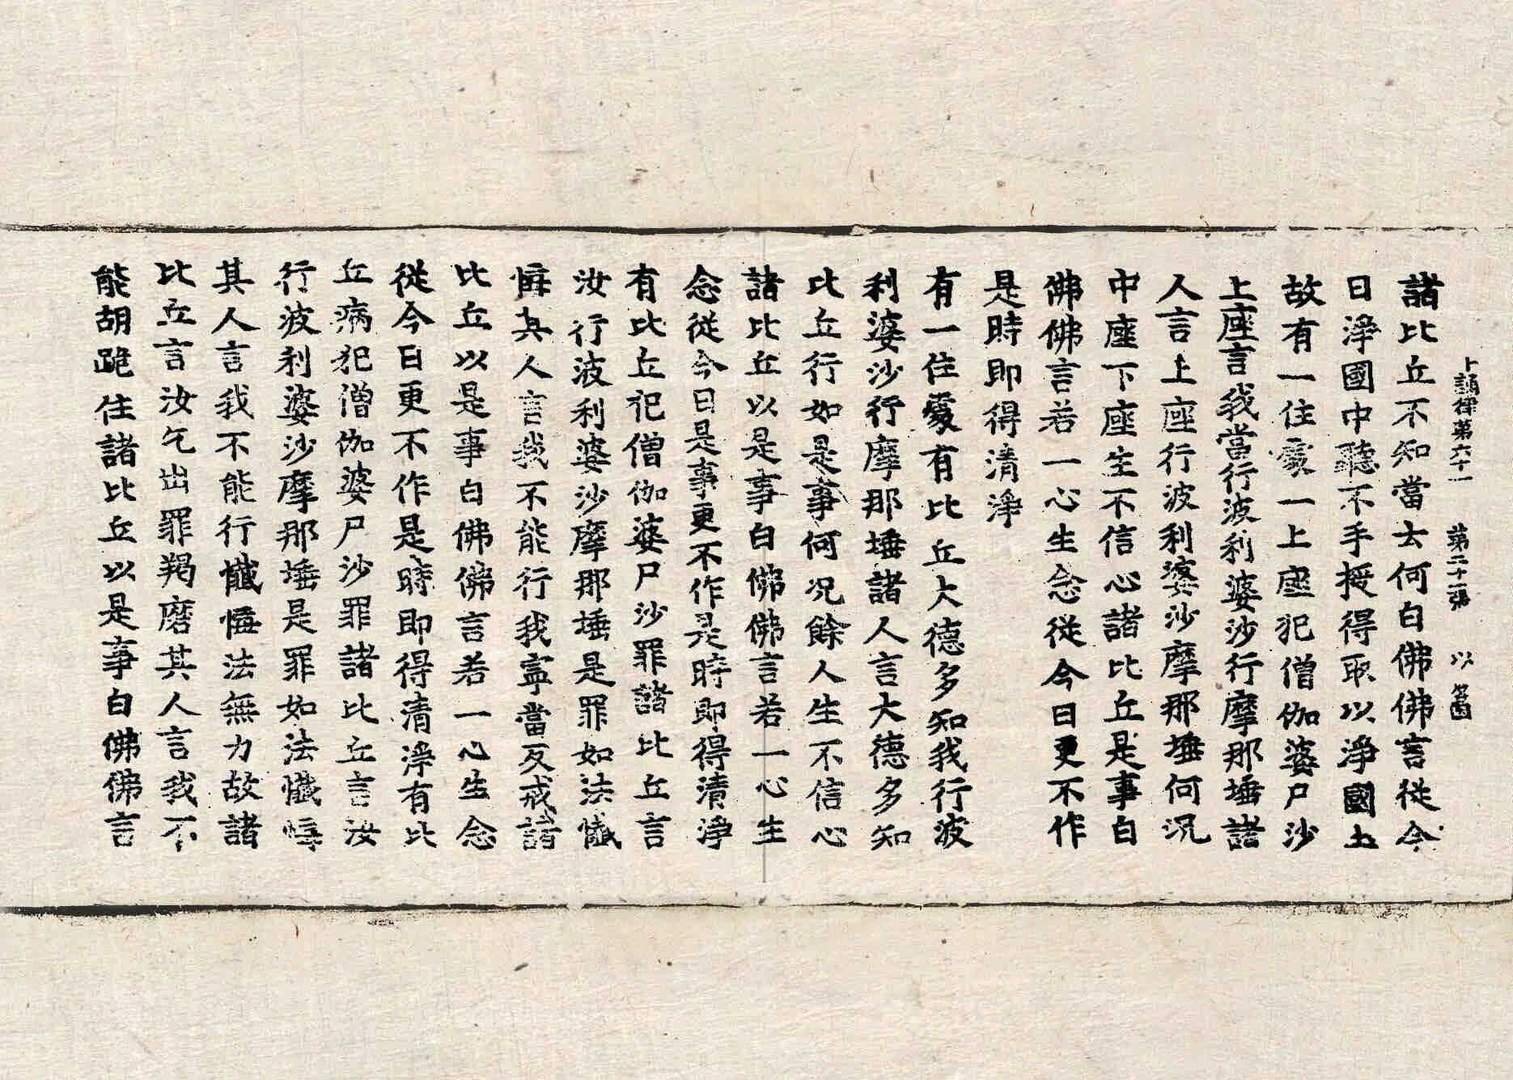 諸比丘不知當去何白佛佛言從今
十誦律第六十一 第二十二張 以
日淨國中聽不手捉得取以淨國土
故有一住處一上座犯僧伽婆尸沙
上座言我當行波利婆沙行摩那埵諸
人言上座行波利婆沙摩那埵何況
中座下座生不信心諸比丘是事白
佛佛言若一心生念從今日更不作
是時即得清淨
有一住處有比丘大德多知我行波
利婆沙行摩那埵諸人言大德多知
比丘行如是事何況餘人生不信心
諸比丘以是事白佛佛言若一心生
念從今日是事更不作是時即得清淨
有比丘犯僧伽婆尸沙罪諸比丘言
汝行波利婆沙摩那埵是罪如法懺
悔其人言我不能行我寧當反戒諸
比丘以是事白佛佛言若一心生念
從今日更不作是時即得清淨有比
丘病犯僧伽婆尸沙罪諸比丘言汝
行波利婆沙摩那埵是罪如法懺悔
其人言我不能行懺悔法無力故諸
比丘言汝乞出罪羯磨其人言我不
能胡跪住諸比丘以是事白佛佛言